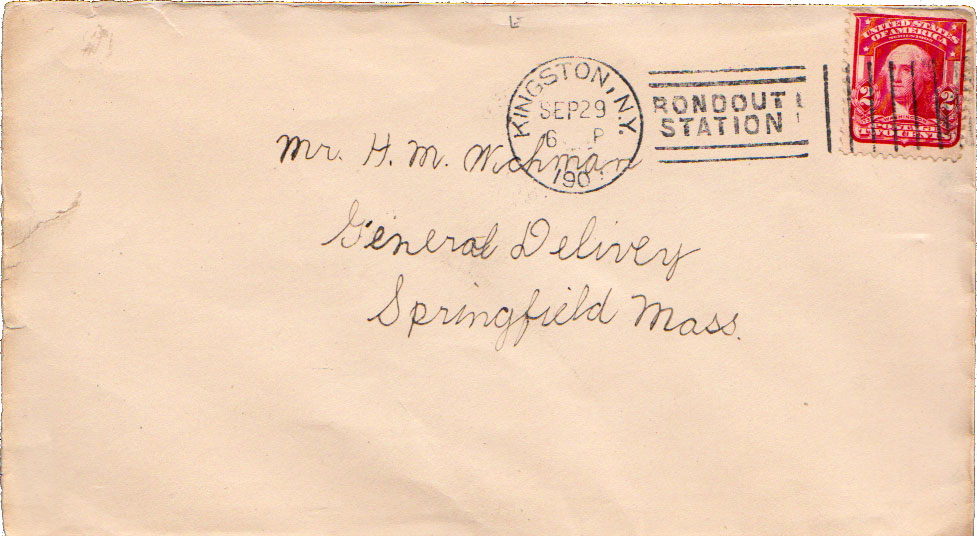 KINGSTON, N.Y.
SEP 29
6 P
190
RONDOUT
STATION
UNITED STATES
OF AMERICA
2 2
TWO CENTS
Mr. H. M. Wichman
General Delivey
Springfield Mass.